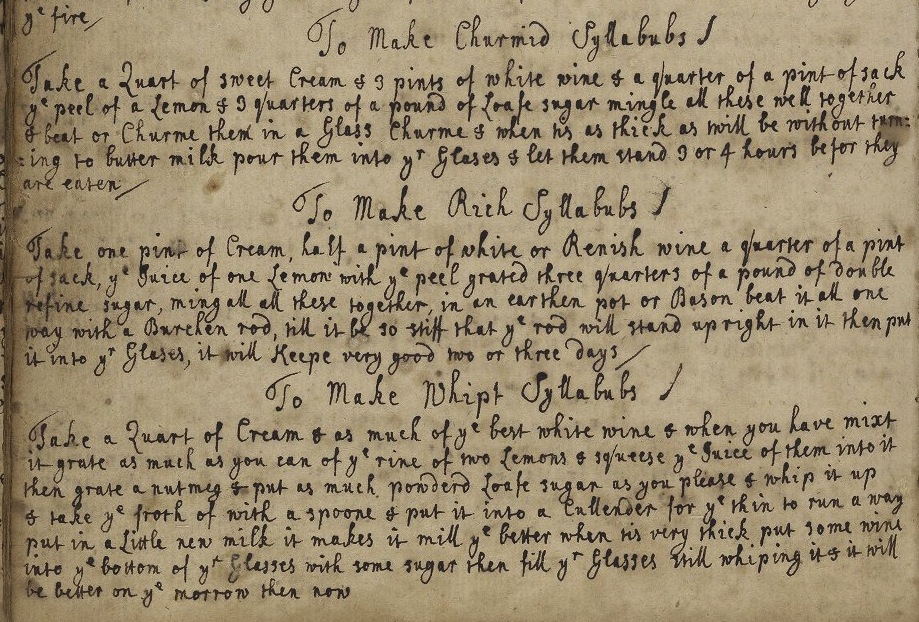 yᵉ fire
To Make Churmid Syllabubs
Take a Quart of sweet Cream & 3 pints of white wine & a quarter of a pint of sack
yᵉ peel of a Lemon & 3 quarters of a pound of Loafe sugar mingle all these well together
& beat or Churme them in a Glass Churme & when tis as thick as twill be without turn:
:ing to butter milk pour them into yʳ Glases & let them stand 3 or 4 hours befor they
are eaten
To Make Rich Syllabubs
Take one pint of Cream, half a pint of white or Renish wine a quarter of a pint
of sack, yᵉ Juice of one Lemon with yᵉ peel grated three quarters of a pound of double
refine sugar, mingall all these together, in an earthen pot or Bason beat it all one
way with a Burchen rod, till it be so stiff that yᵉ rod will stand up right in it then put
it into yʳ Glases, it will Keepe very good two or three days
To Make Whipt Syllabubs
Take a Quart of Cream & as much of yᵉ best white wine & when you have mixt
it grate as much as you can of yᵉ rine of two Lemons & squeese yᵉ Juice of them into it
then grate a nutmeg & put as much powderd Loafe sugar as you please & whip it up
& take yᵉ froth of with a spoone & put it into a Cullender for yᵉ thin to run a way
put in a Little new milk it makes it mill yᵉ better when tis very thick put some wine
into yᵉ bottom of yʳ Glasses with some sugar then fill yʳ Glasses still whiping it & it will
be better on yᵉ morrow then now